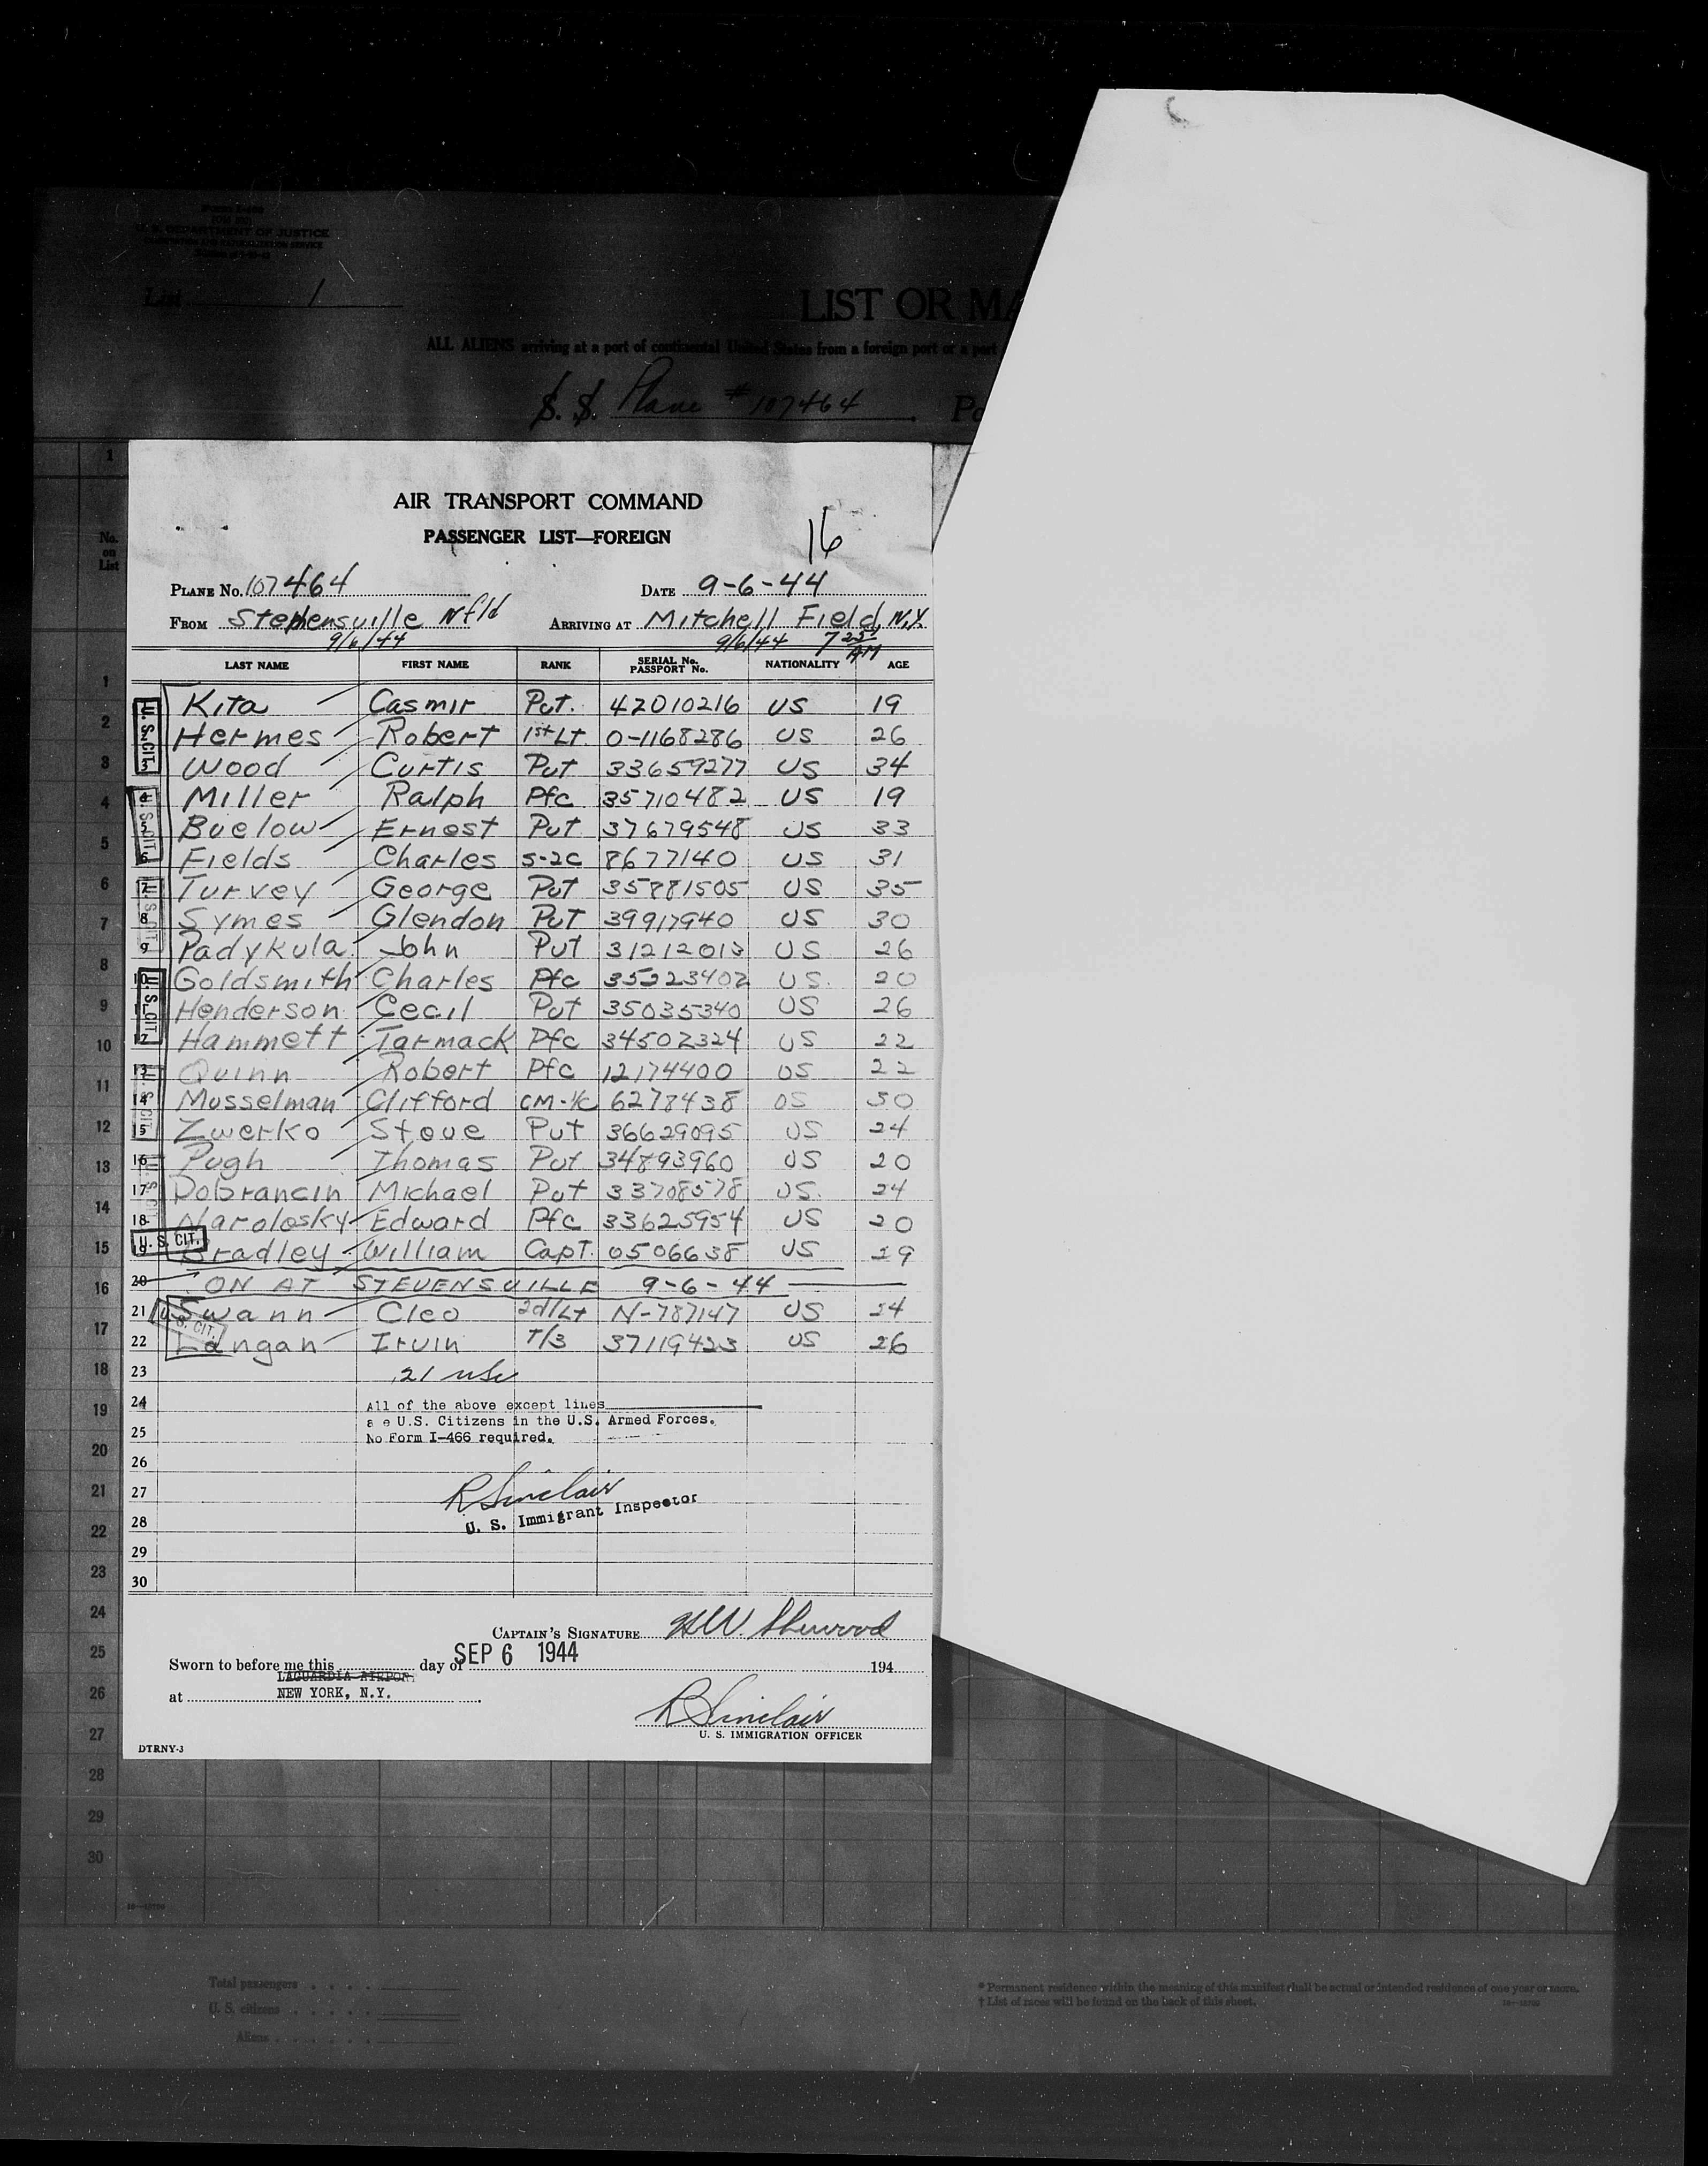 U. S. DEPARTMENT OF JUSTICE
List 1
LIST OR MA
ALL ALIENS arriving at a port of continental United States from a foreign port or a port
S. S. Plane # 107464 Po
AIR TRANSPORT COMMAND
PASSENGER LIST—FOREIGN
16
PLANE No. 107464 DATE 9-6-44
FROM Stephensville Nfld ARRIVING AT Mitchell Field, N.Y.
9/6/44 9/6/44 7 25 AM
LAST NAME FIRST NAME RANK SERIAL No. PASSPORT No. NATIONALITY AGE
1 Kita Casmir Pvt. 42010216 US 19
2 Hermes Robert 1st Lt. O-1168286 US 26
3 Wood Curtis Pvt 33659277 US 34
4 Miller Ralph Pfc 35710482 US 19
5 Buelow Ernest Pvt 37679548 US 33
6 Fields Charles S-2C 8677140 US 31
7 Turvey George Pvt 35881505 US 35
8 Symes Glendon Pvt 39917940 US 30
9 Padykula John Pvt 31212013 US 26
10 Goldsmith Charles Pfc 35223402 US. 20
11 Henderson Cecil Pvt 35035340 US 26
12 Hammett Tarmack Pfc 34502324 US 22
13 Quinn Robert Pfc 12174400 US 22
14 Musselman Clifford CM-1/C 6278438 US 30
15 Zwerko Steve Pvt 36629095 US 24
16 Pugh Thomas Pvt 34893960 US 20
17 Dobrancin Michael Pvt 33708578 US. 24
18 Narolosky Edward Pfc 33625954 US 20
19 Bradley William Capt. 0506638 US 29
U. S. CIT.
20 ON AT STEVENSVILLE 9-6-44
21 Swann Cleo 2d/Lt N-787147 US 24
22 Langan Irvin T/3 37119423 US 26
23 21 USC
24 All of the above except lines
are U.S. Citizens in the U.S. Armed Forces.
25 No Form I-466 required.
26
27 R Sinclair
28 U. S. Immigrant Inspector
29
30
CAPTAIN'S SIGNATURE H W. Sherwood
Sworn to before me this day of SEP 6 1944 194
LAGUARDIA AIRPORT
at NEW YORK, N.Y.
R Sinclair
U. S. IMMIGRATION OFFICER
DTRNY-3
Total passengers
U. S. citizens
Aliens
* Permanent residence within the meaning of this manifest shall be actual or intended residence of one year or more.
† List of races will be found on the back of this sheet.